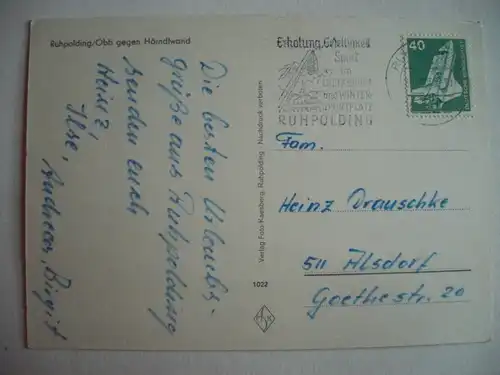 Ruhpolding/Obb gegen Hörndlwand
Die besten Urlaubs-
grüße aus Ruhpolding
senden euch
Heinz,
Ilse, Andreas, Birgit
Verlag Foto Kaesberg, Ruhpolding · Nachdruck verboten
1022
Erholung, Geselligkeit
Sport
im
und WINTER-
RUHPOLDING
40
Fam.
Heinz Drauschke
511 Alsdorf
Goethestr. 20